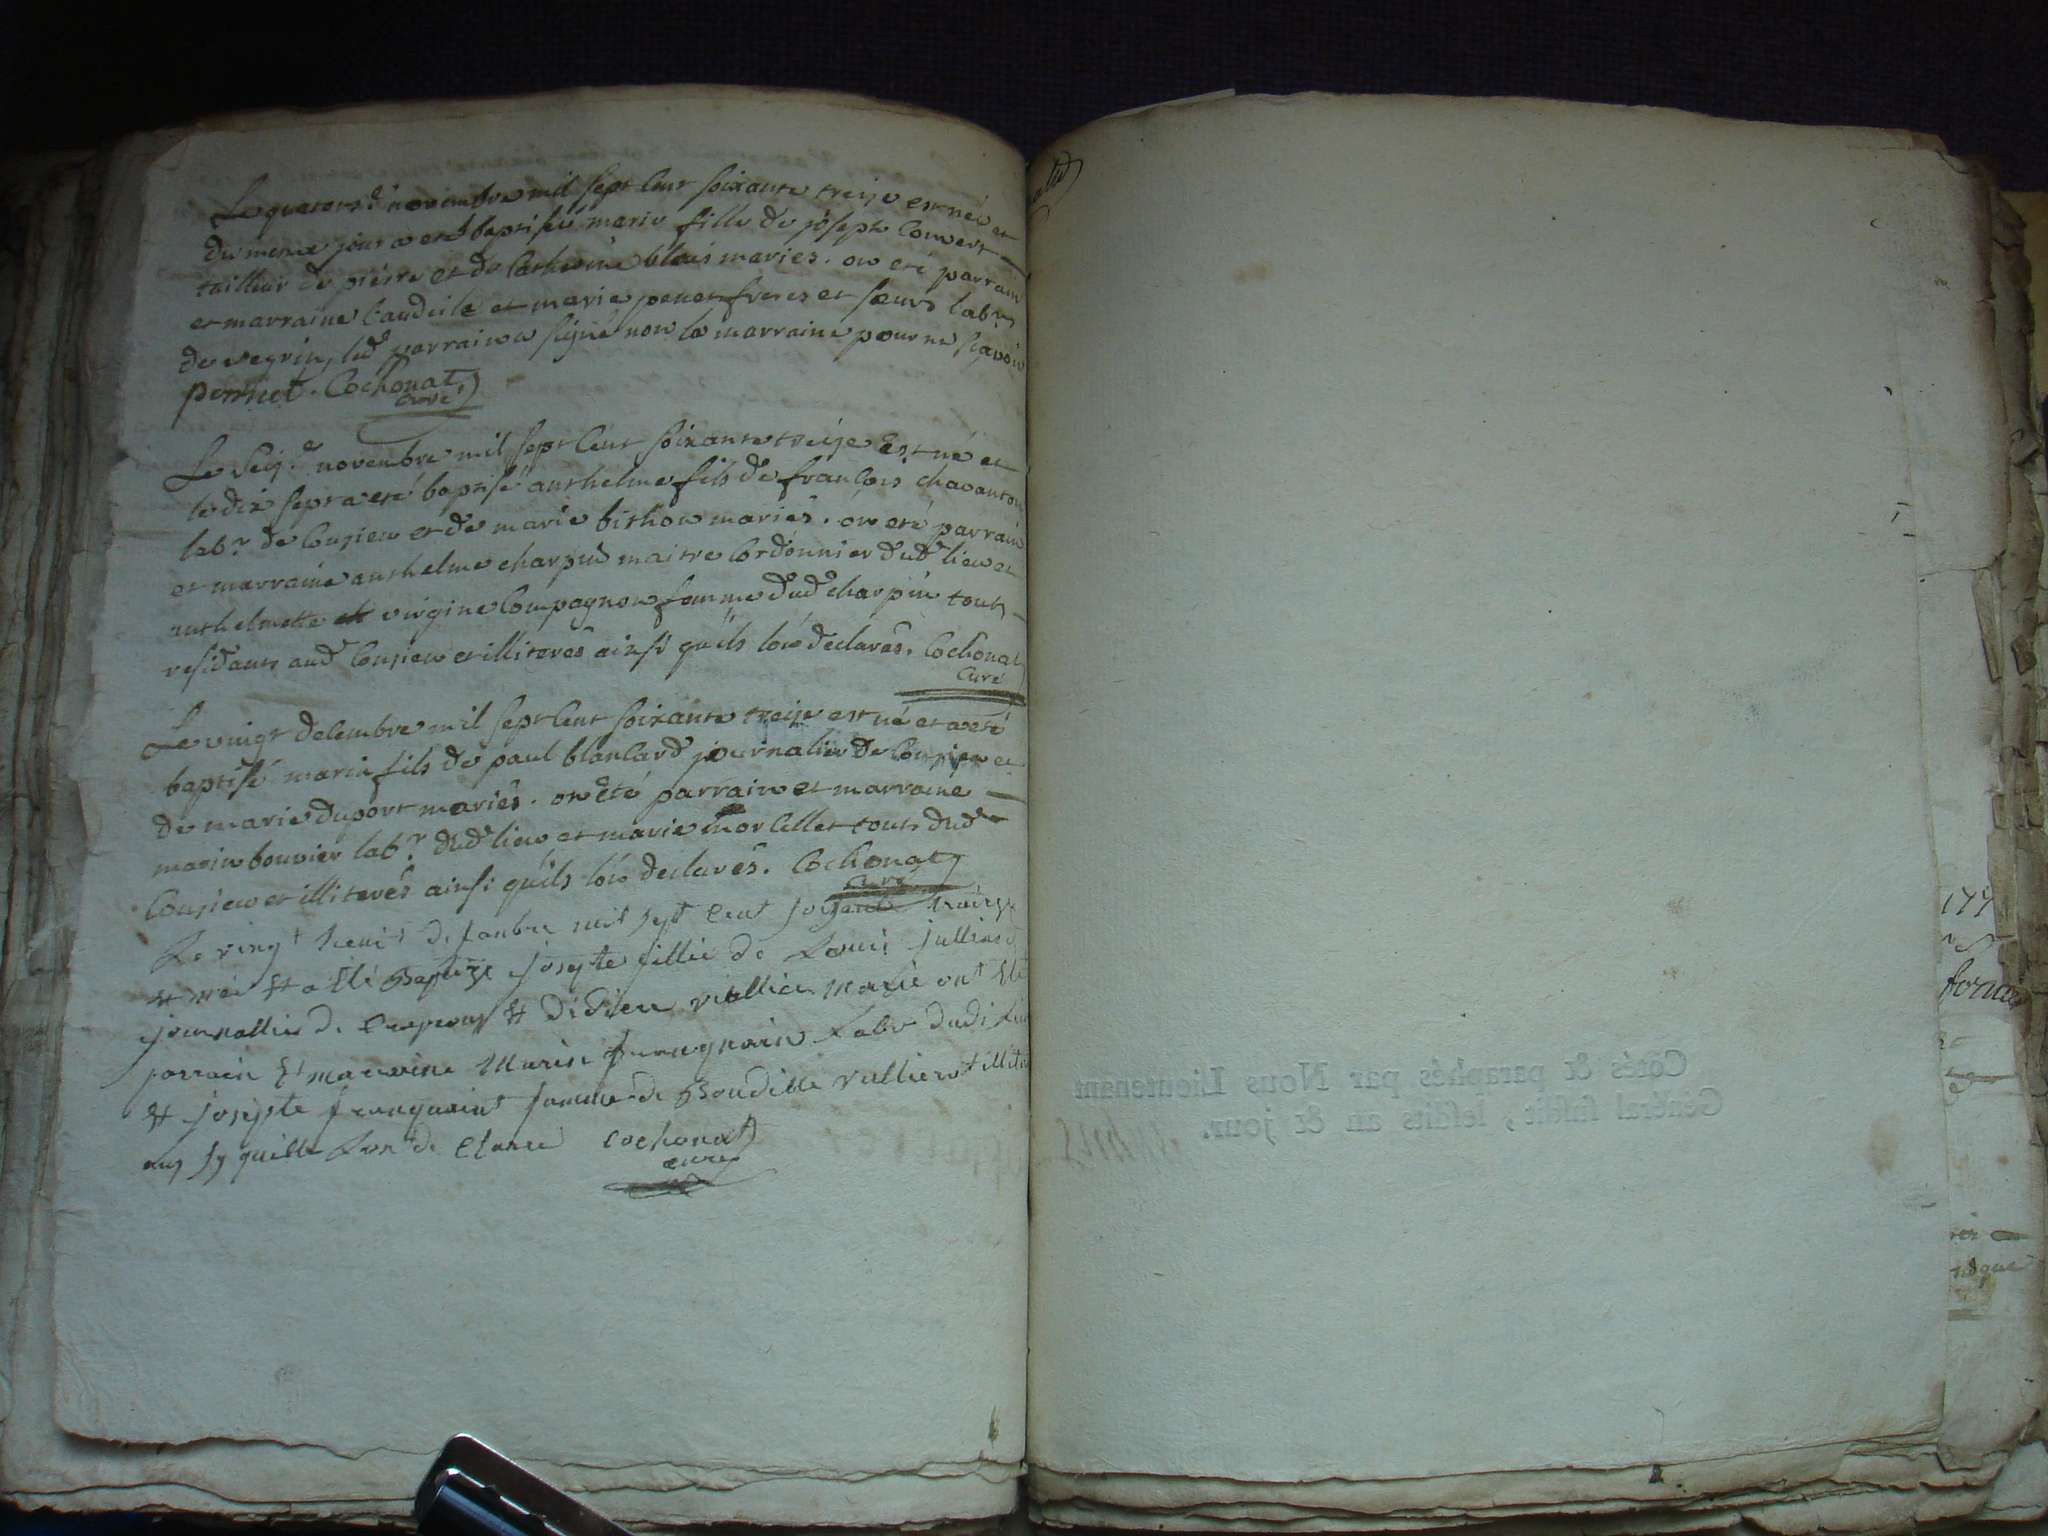 Le quatorze novembre mil sept cent soixante treize est née et
du meme jour a eté baptisée marie fille de joseph Convert
tailleur de pierre et de Catherine blais mariés. on eté parrain
et marraine baudile et marie penet freres et soeurs labrs
de vegrin, led parrain a signé non la marraine pour ne sçavoir
pernnet. Cochonat
curé
Le seize novembre mil sept cent soixante treize Est né et
le dix sept a eté baptisé anthelme fils de françois chavanton
labr de Consieu et de marie bithon mariés. on eté parrain
et marraine anthelme charpin maitre Cordonnier dud lieu et
anthelmette et virgine Compagnon femme dud charpin touts
residants aud Consieu et illiterés ainsi quils lon declarés. Cochonat
Curé
Le vingt decembre mil sept cent soixante treize est né et a eté
baptisé marin fils de paul blanCard journalier de Consieu et
de marie duport mariés. on été parrain et marraine
marin bouvier labr dud lieu et marie morCellet touts dud
Consieu et illiterés ainsi quils lon declarés. Cochonat
Curé
Le vingt huit desanbre mil sept cent soisante
et née et a eté Baptize josepte fillie de Louis julliand
journallier de et de viallier marié ont eté
parrain et marraine Marin franquain Labr dudi Lieu
et josepte franquaint famme de Baudille vullierot
Lon de Claré Cochonat
curé
Cotés & paraphés par Nous Lieutenant
Général susdit, lesdits an & jour.
177